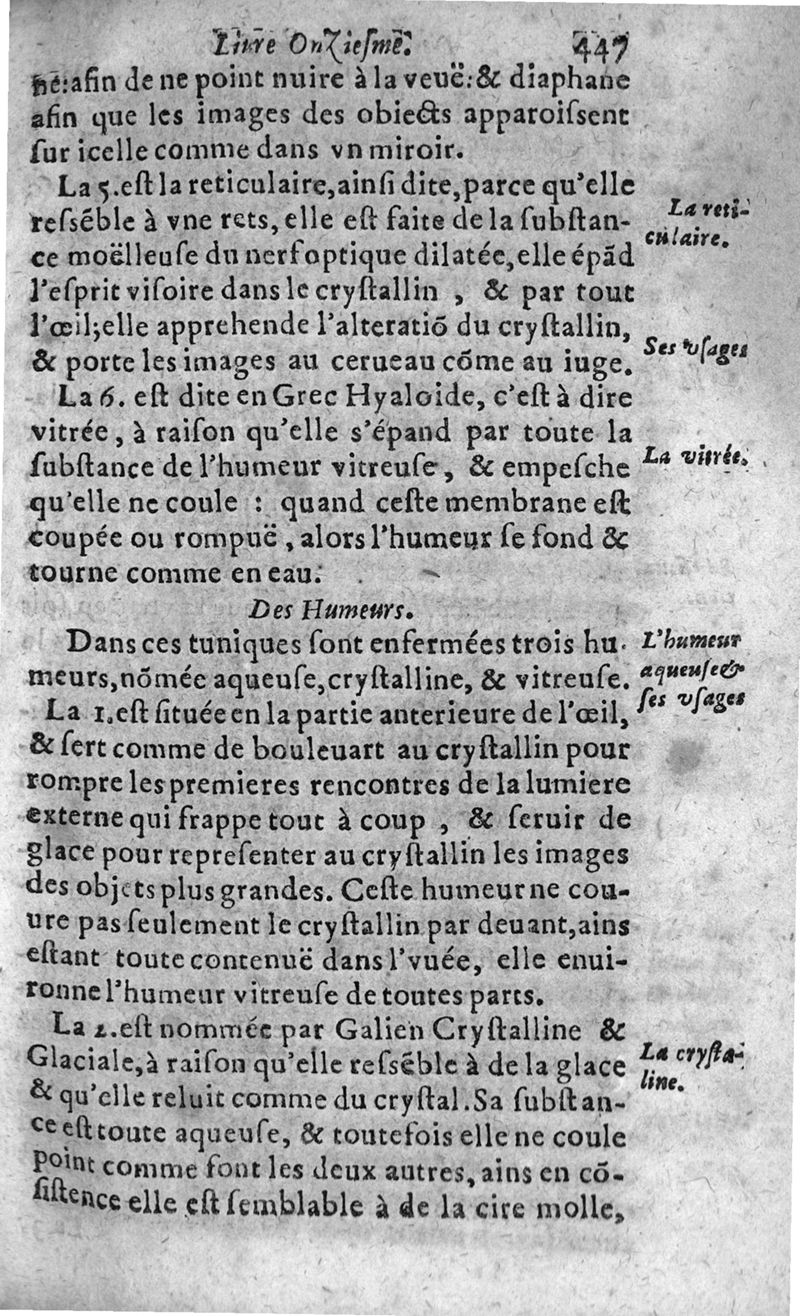 Liure Onziesme. 447
né: afin de ne point nuire à la veuë: & diaphane
afin que les images des obiects apparoiſsent
ſur icelle comme dans vn miroir.
La 5. eſt la reticulaire, ainſi dite, parce qu'elle
reſsẽble à vne rets, elle eſt faite de la ſubſtan-
La reti-
culaire.
ce moëlleuſe du nerf optique dilatée, elle épãd
l'eſprit viſoire dans le cryſtallin , & par tout
l'œil; elle apprehende l'alteratiõ du cryſtallin,
& porte les images au cerueau cõme au iuge.
Ses vſages
La 6. eſt dite en Grec Hyaloide, c'eſt à dire
vitrée, à raiſon qu'elle s'épand par toute la
ſubſtance de l'humeur vitreuſe, & empeſche
La vitrée.
qu'elle ne coule : quand ceſte membrane eſt
coupée ou rompuë , alors l'humeur ſe fond &
tourne comme en eau.
Des Humeurs.
Dans ces tuniques ſont enfermées trois hu-
meurs, nõmée aqueuſe, cryſtalline, & vitreuſe.
L'humeur
aqueuſe &
ſes vſages
La 1. eſt ſituée en la partie anterieure de l'œil,
& ſert comme de bouleuart au cryſtallin pour
rompre les premieres rencontres de la lumiere
externe qui frappe tout à coup , & ſeruir de
glace pour repreſenter au cryſtallin les images
des objets plus grandes. Ceſte humeur ne cou-
ure pas ſeulement le cryſtallin par deuant, ains
eſtant toute contenuë dans l'vuée, elle enui-
ronne l'humeur vitreuſe de toutes parts.
La 2. eſt nommée par Galien Cryſtalline &
Glaciale, à raiſon qu'elle reſsẽble à de la glace
La cryſta-
line.
& qu'elle reluit comme du cryſtal. Sa ſubſtan-
ce eſt toute aqueuſe, & toutefois elle ne coule
point comme font les deux autres, ains en cõ-
ſiſtence elle eſt ſemblable à de la cire molle,